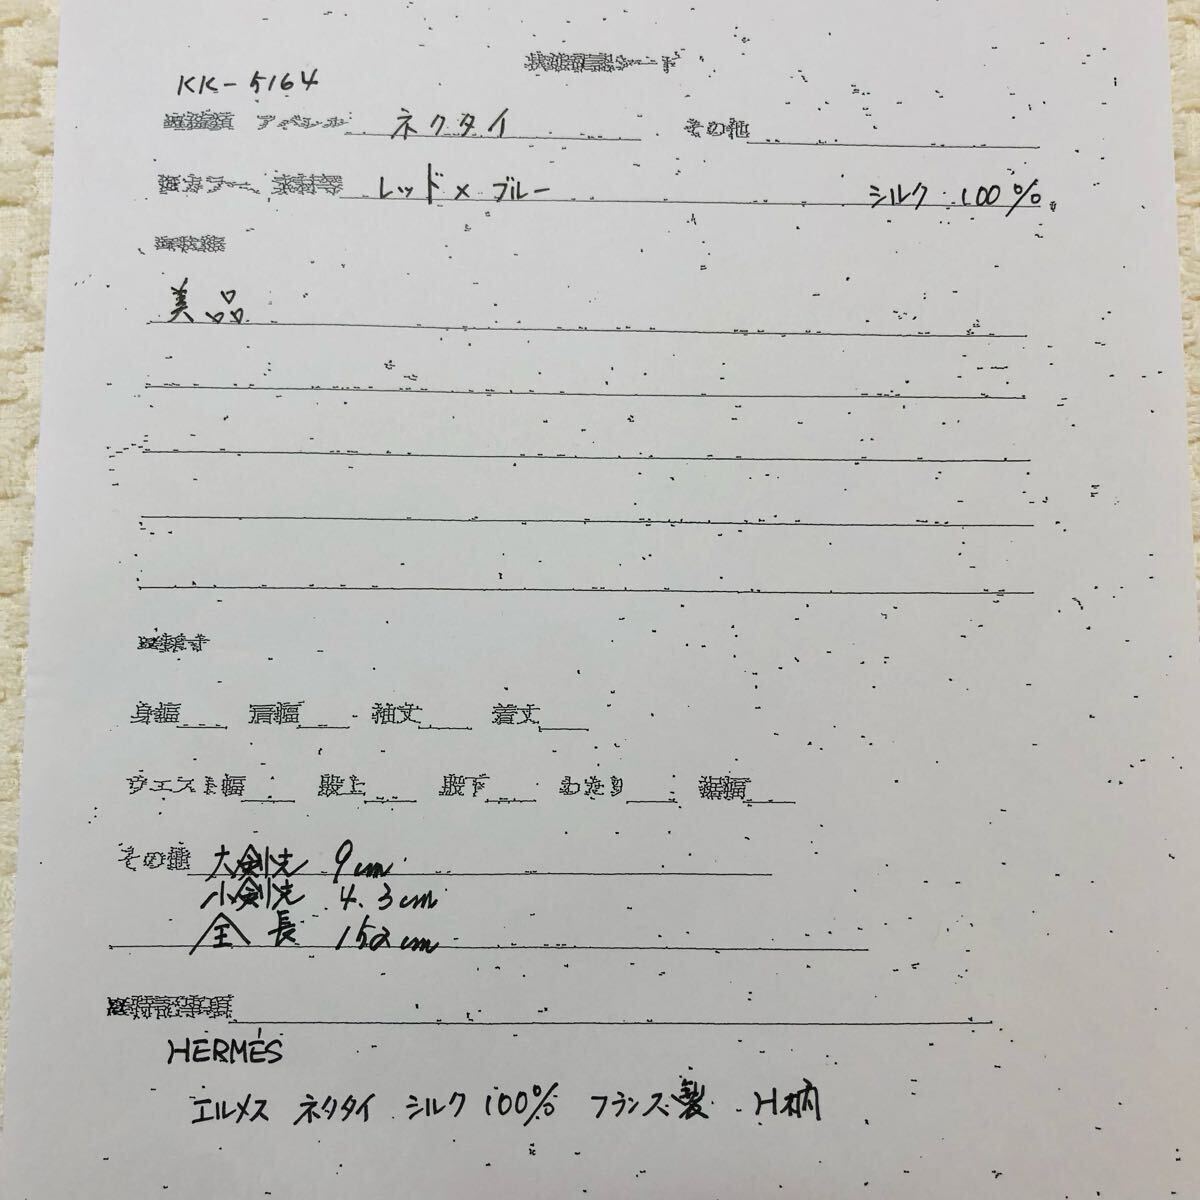 状態確認シート
KK-5164
アパレル ネクタイ その他
カラー、素材等 レッド×ブルー シルク 100%
美品
身幅 肩幅 袖丈 着丈
ウエスト幅 股上 股下 わたり 裾幅
その他 大剣先 9cm
小剣先 4.3cm
全長 152cm
※特記事項
HERMÉS
エルメス ネクタイ シルク 100% フランス製 H柄